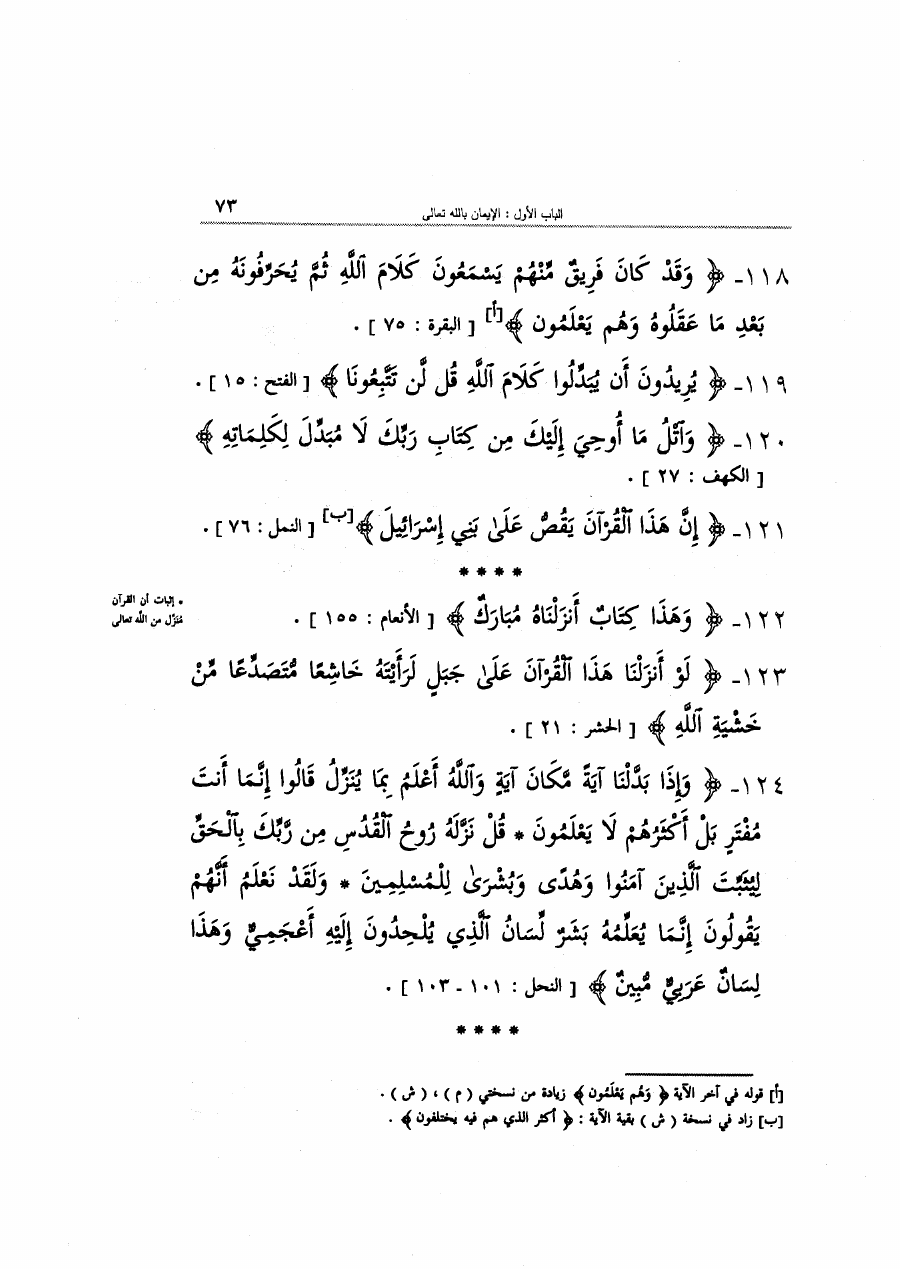 الباب الأول : الإيمان بالله تعالى ٧٣
١١٨ـ ﴿ وَقَدْ كَانَ فَرِيقٌ مِّنْهُمْ يَسْمَعُونَ كَلَامَ ٱللَّهِ ثُمَّ يُحَرِّفُونَهُ مِن
بَعْدِ مَا عَقَلُوهُ وَهُم يَعْلَمُون ﴾[أ] [ البقرة : ٧٥ ] .
١١٩ـ ﴿ يُرِيدُونَ أَن يُبَدِّلُوا كَلَامَ ٱللَّهِ قُل لَّن تَتَّبِعُونَا ﴾ [ الفتح : ١٥ ] .
١٢٠ـ ﴿ وَٱتْلُ مَا أُوحِيَ إِلَيْكَ مِن كِتَابِ رَبِّكَ لَا مُبَدِّلَ لِكَلِمَاتِهِ ﴾
[ الكهف : ٢٧ ] .
١٢١ـ ﴿ إِنَّ هَذَا ٱلْقُرْآنَ يَقُصُّ عَلَىٰ بَنِي إِسْرَائِيلَ ﴾[ب] [ النمل : ٧٦ ] .
* * * *
* إثبات أن القرآن
مُنَزَّل من الله تعالى
١٢٢ـ ﴿ وَهَذَا كِتَابٌ أَنزَلْنَاهُ مُبَارَكٌ ﴾ [ الأنعام : ١٥٥ ] .
١٢٣ـ ﴿ لَوْ أَنزَلْنَا هَذَا ٱلْقُرْآنَ عَلَىٰ جَبَلٍ لَرَأَيْتَهُ خَاشِعًا مُّتَصَدِّعًا مِّنْ
خَشْيَةِ ٱللَّهِ ﴾ [ الحشر : ٢١ ] .
١٢٤ـ ﴿ وَإِذَا بَدَّلْنَا آيَةً مَّكَانَ آيَةٍ وَٱللَّهُ أَعْلَمُ بِمَا يُنَزِّلُ قَالُوا إِنَّمَا أَنتَ
مُفْتَرٍ بَلْ أَكْثَرُهُمْ لَا يَعْلَمُونَ * قُلْ نَزَّلَهُ رُوحُ ٱلْقُدُسِ مِن رَّبِّكَ بِٱلْحَقِّ
لِيُثَبِّتَ ٱلَّذِينَ آمَنُوا وَهُدًى وَبُشْرَىٰ لِلْمُسْلِمِينَ * وَلَقَدْ نَعْلَمُ أَنَّهُمْ
يَقُولُونَ إِنَّمَا يُعَلِّمُهُ بَشَرٌ لِّسَانُ ٱلَّذِي يُلْحِدُونَ إِلَيْهِ أَعْجَمِيٌّ وَهَذَا
لِسَانٌ عَرَبِيٌّ مُّبِينٌ ﴾ [ النحل : ١٠١ ـ ١٠٣ ] .
* * * *
[أ] قوله في آخر الآية ﴿ وَهُم يَعْلَمُون ﴾ زيادة من نسختي ( م ) ، ( ش ) .
[ب] زاد في نسخة ( ش ) بقية الآية : ﴿ أكثر الذي هم فيه يختلفون ﴾ .